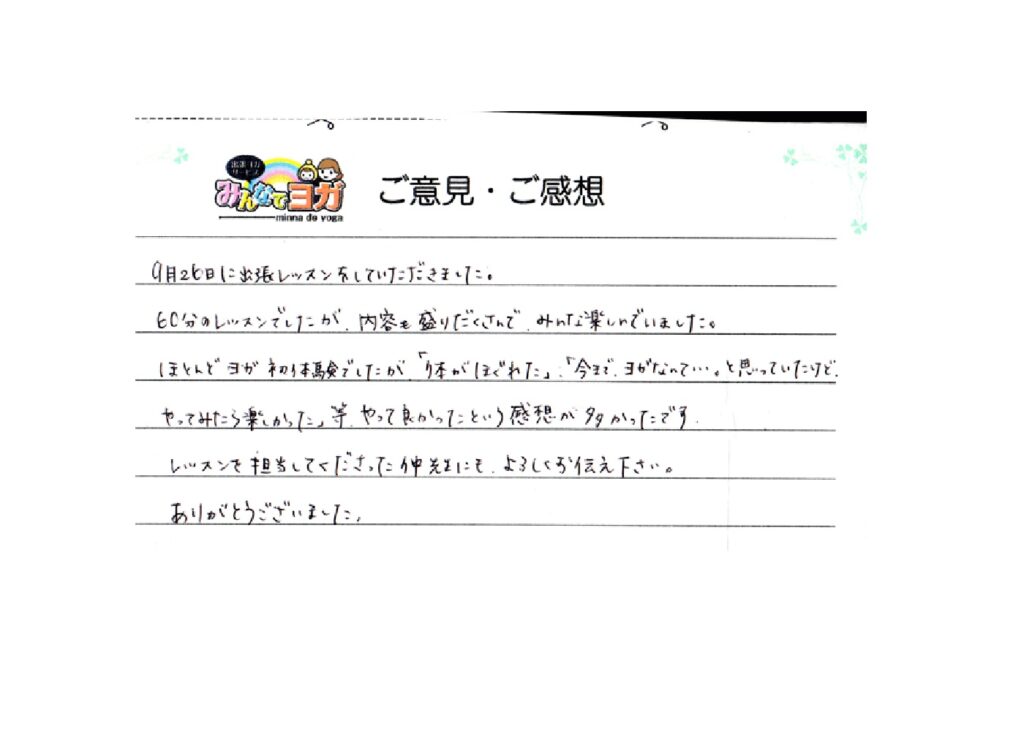 出張ヨガ
サービス
みんなでヨガ
minna de yoga
ご意見・ご感想
9月26日に出張レッスンをしていただきました。
60分のレッスンでしたが、内容も盛りだくさんで、みんな楽しんでいました。
ほとんどヨガ初体験でしたが、「体がほぐれた」、「今まで、ヨガなんて…。と思っていたけど、
やってみたら楽しかった」等、やって良かったという感想が多かったです。
レッスンを担当してくださった仲先生にも、よろしくお伝え下さい。
ありがとうございました。